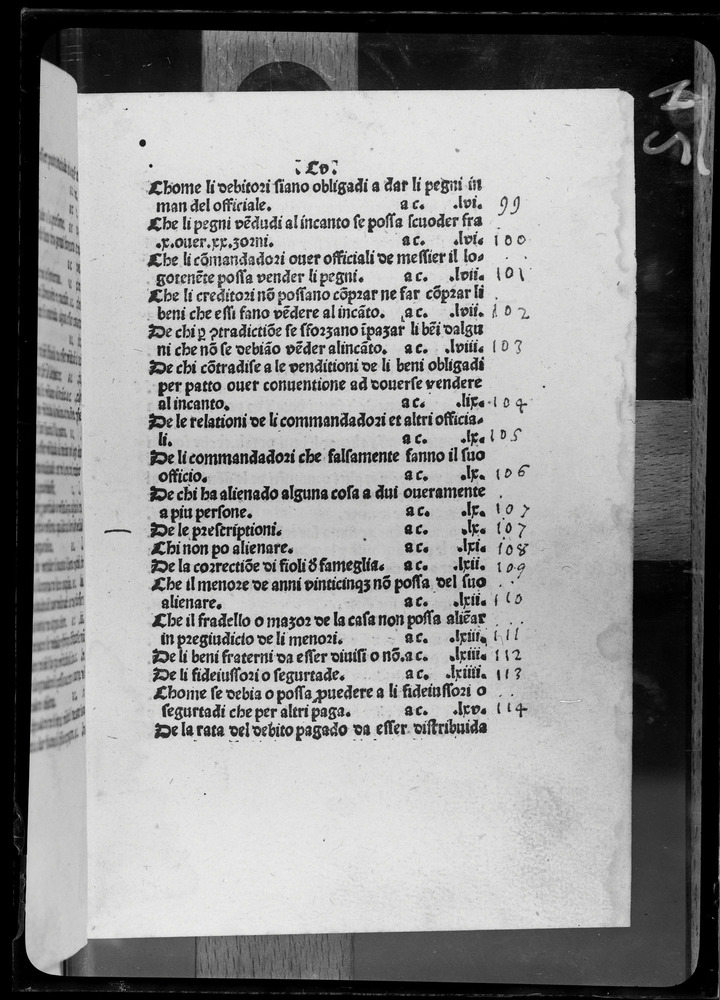 :Cv:
Chome li debitori siano obligadi a dar li pegni in
man del officiale. a c. .lvi. 99
Che li pegni vēdudi al incanto se possa scuoder fra
.x.ouer.xx.zorni. a c. .lvi. 100
Che li cōmandadori ouer officiali de messier il lo-
gotenēte possa vender li pegni. a c. .lvii. 101
Che li creditori nō possano cōprar ne far cōprar li
beni che essi fano vēdere al incāto. a c. .lvii. 102
De chi ꝑ ꝯtradictiōe se sforzano īpazar li bēi dalgu
ni che nō se debiāo vēder alincāto. a c. .lviii. 103
De chi cōtradise a le venditioni de li beni obligadi
per patto ouer conuentione ad douerse vendere
al incanto. a c. .lix. 104
De le relationi de li commandadori et altri officia-
li. a c. .lx. 105
De li commandadori che falsamente fanno il suo
officio. a c. .lx. 106
De chi ha alienado alguna cosa a dui oueramente
a piu persone. a c. .lx. 107
De le prescriptioni. a c. .lx. 107
Chi non po alienare. a c. .lxi. 108
De la correctiōe di fioli & fameglia. a c. .lxii. 109
Che il menore de anni vinticinqꝫ nō possa del suo
alienare. a c. .lxii. 110
Che il fradello o mazor de la casa non possa aliēar
in pregiudicio de li menori. a c. .lxiii. 111
De li beni fraterni da esser diuisi o nō. a c. .lxiii. 112
De li fideiussori o segurtade. a c. .lxiiii. 113
Chome se debia o possa ꝓuedere a li fideiussori o
segurtadi che per altri paga. a c. .lxv. 114
De la rata del debito pagado da esser distribuida